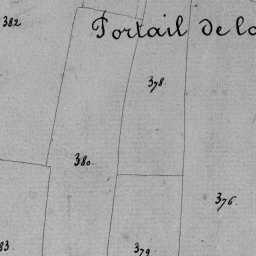 382
Portail de la
378.
380.
376.
383
379